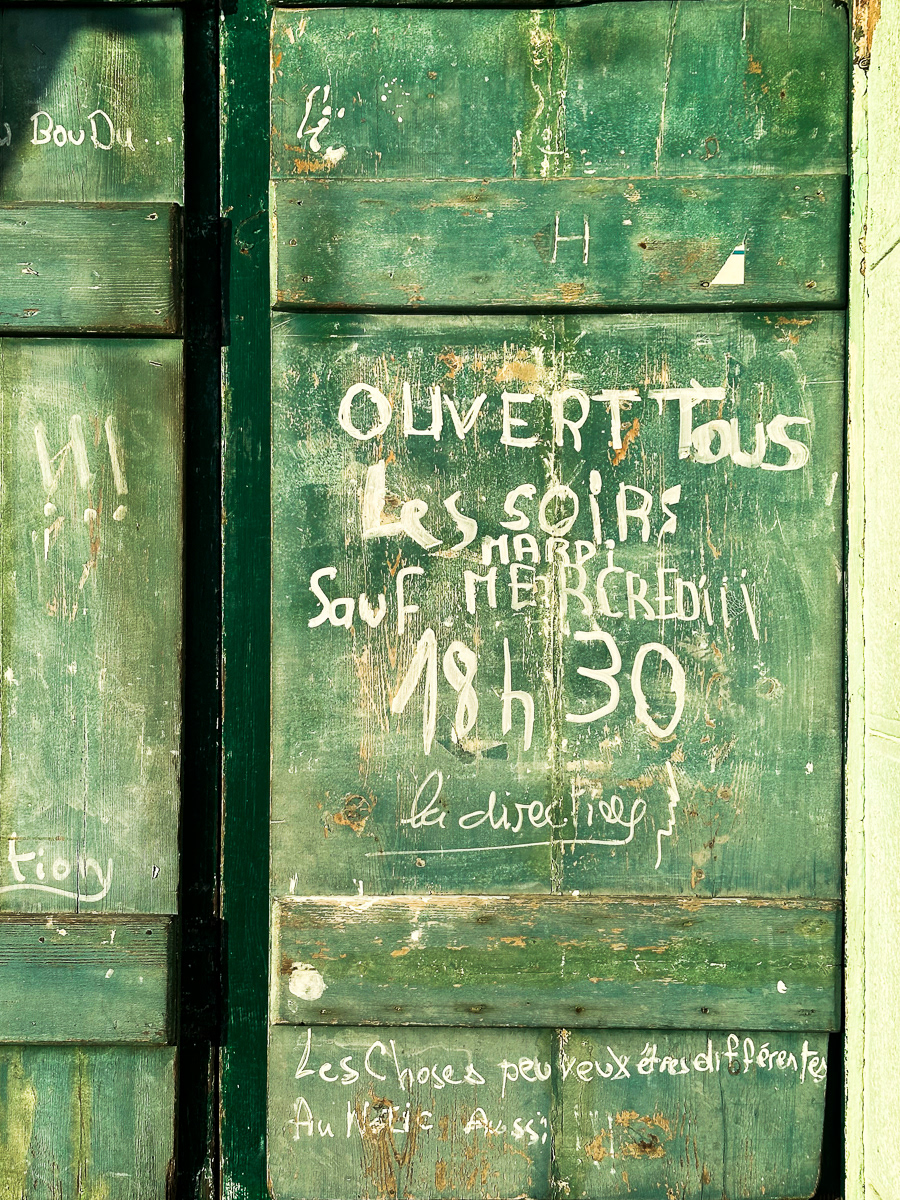 BouDu...
H
OUVERT Tous
Les SOiRS
MARDi
Sauf MERCREDiii
18h 30
la direction
tion
Les Choses peuveux êtres différentes
Au Aussi